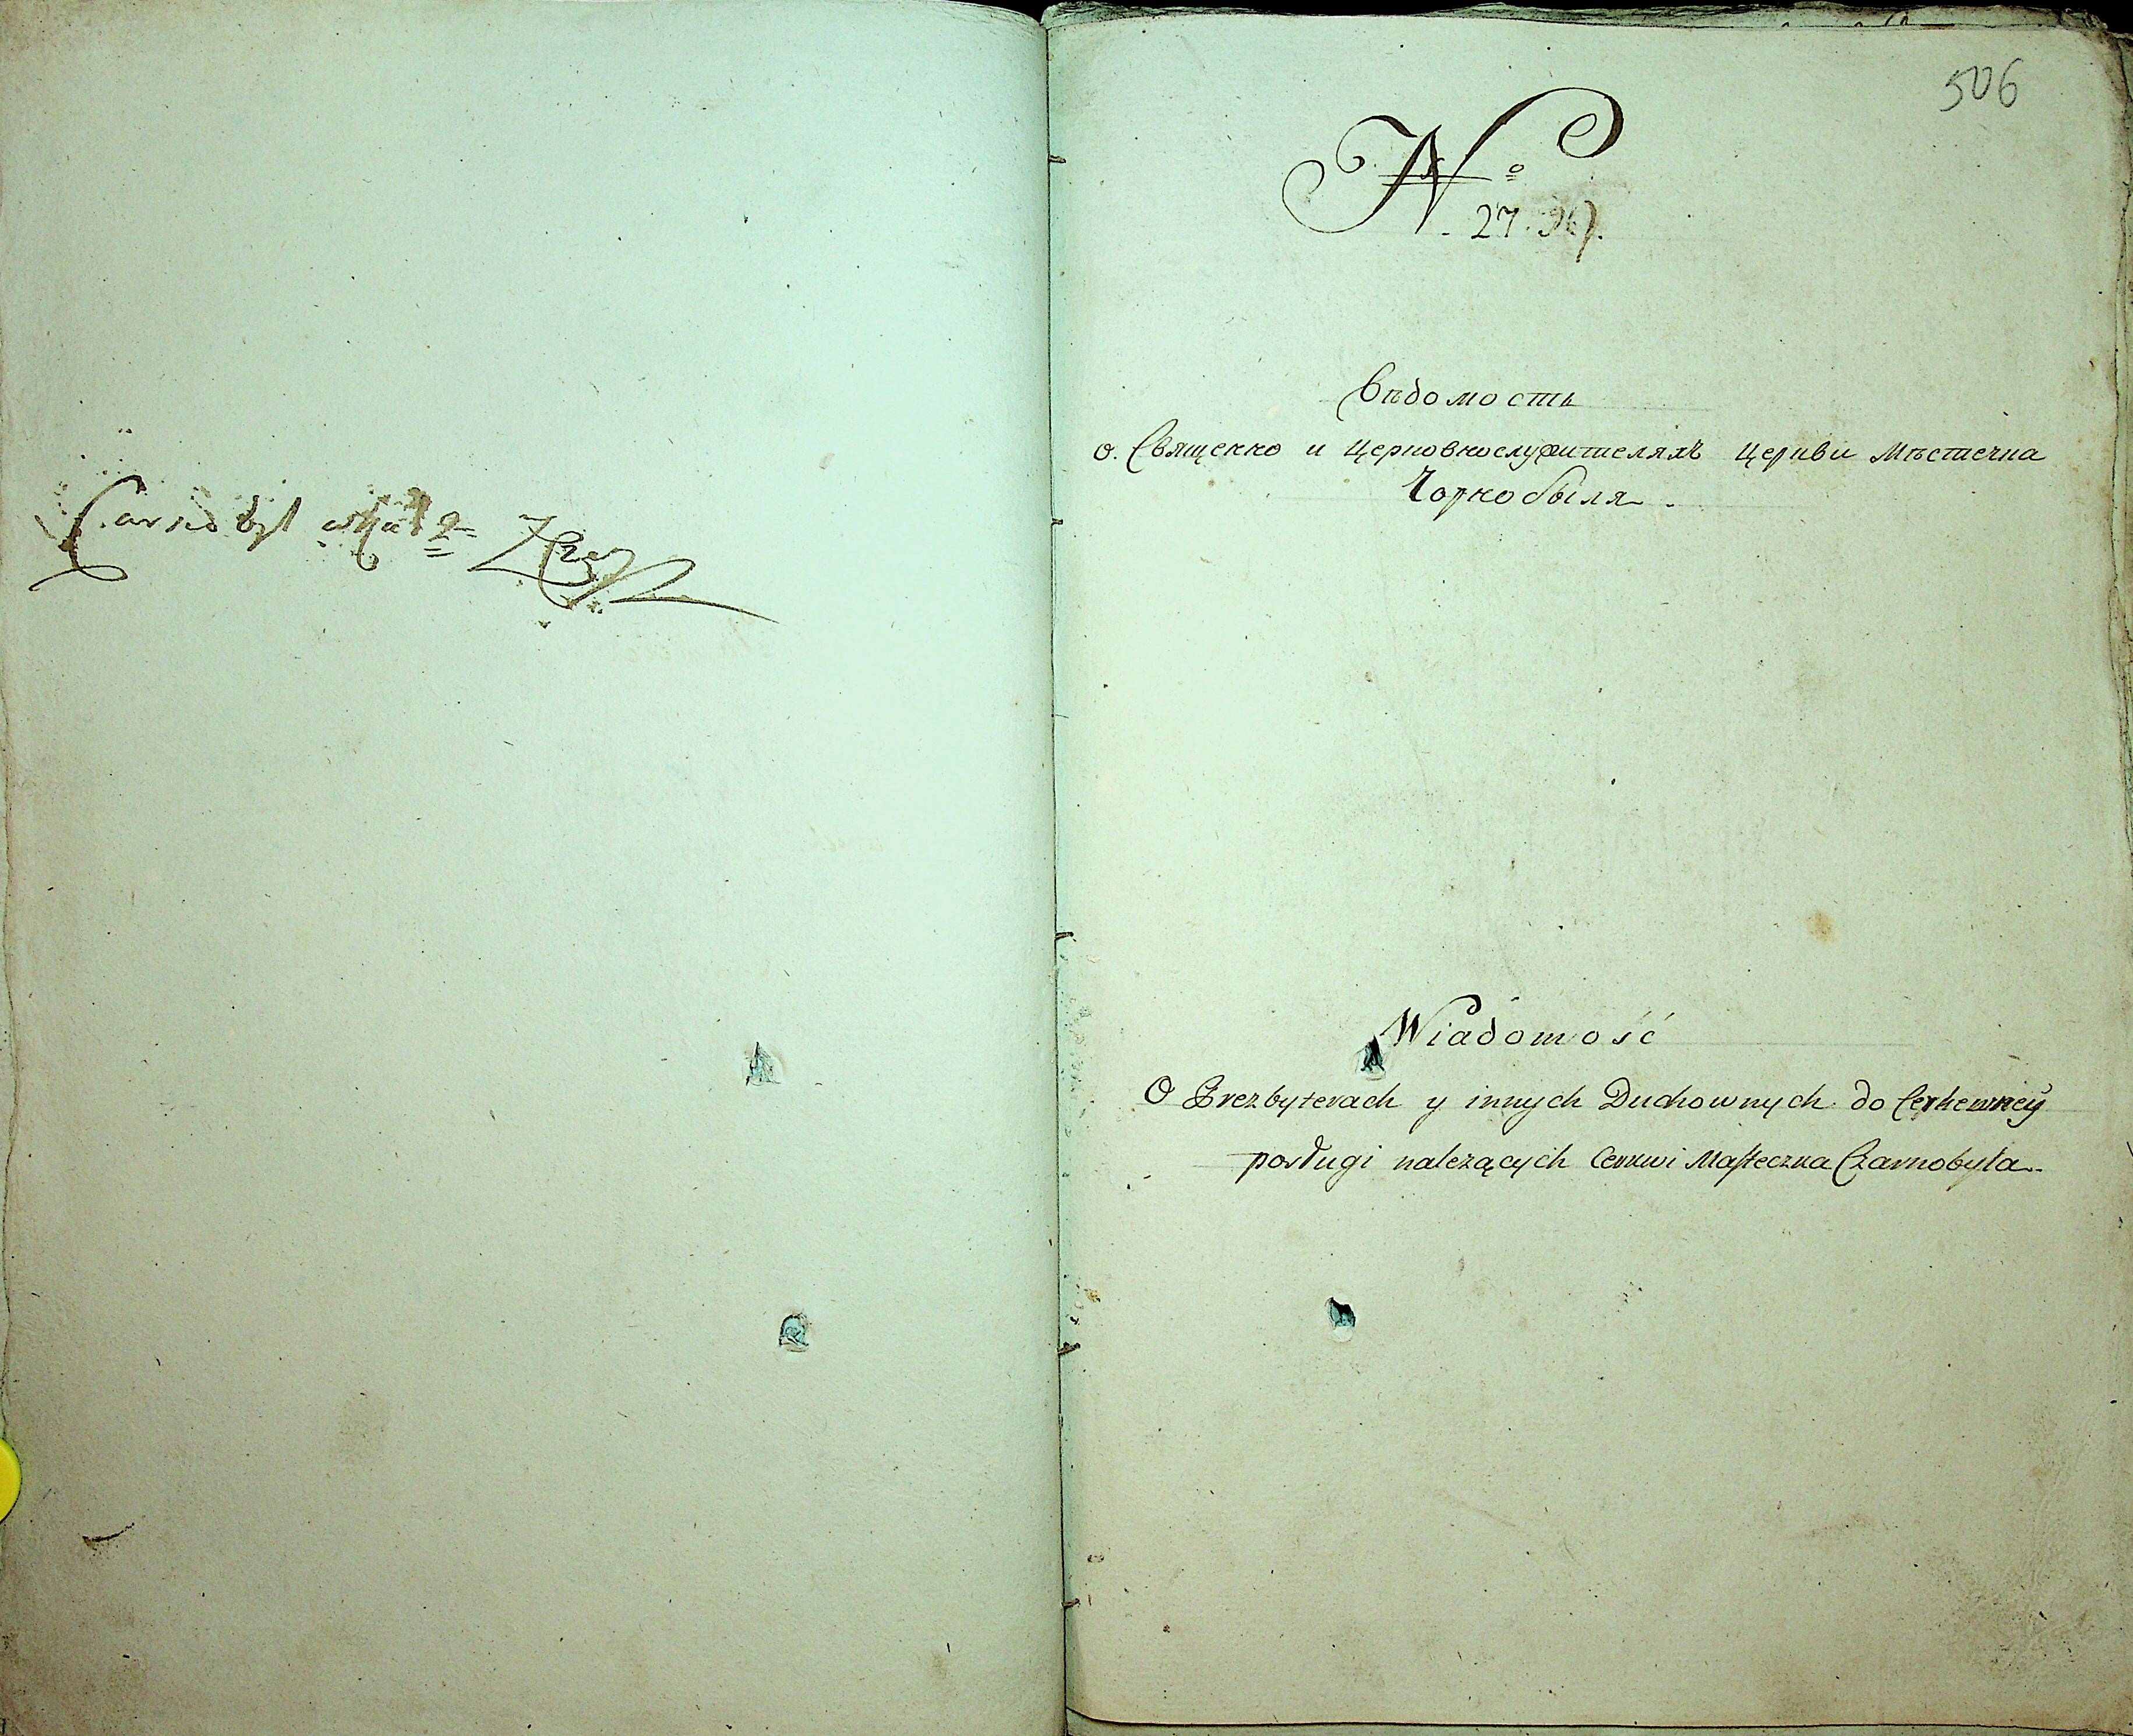 506
No
27.
Вѣдомость
о. Священно и Церковнослужителяхъ Церкви Мѣстечка
Чорнобыля.
Wiadomość
O Prezbyterach y innych Duchownych do Cerkewney
posługi nalezących Cerkwi Miasteczka Czarnobyla.